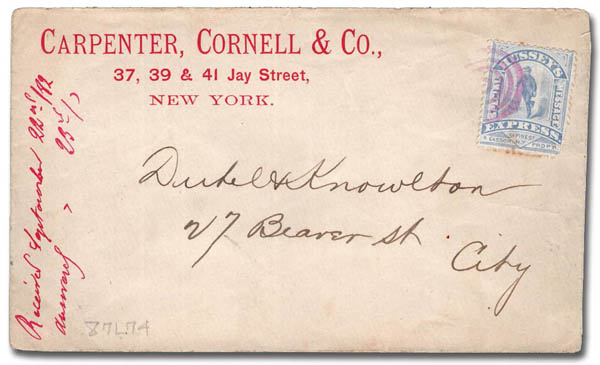 CARPENTER, CORNELL & CO.,
37, 39 & 41 Jay Street,
NEW YORK.
HUSSEY'S
MESSAGE
EXPRESS.
54 PINE ST.
PROPR.
Dutel & Knowlton
27 Beaver St.
City
Received September 22nd /82
Answered " 23rd /"
87L74